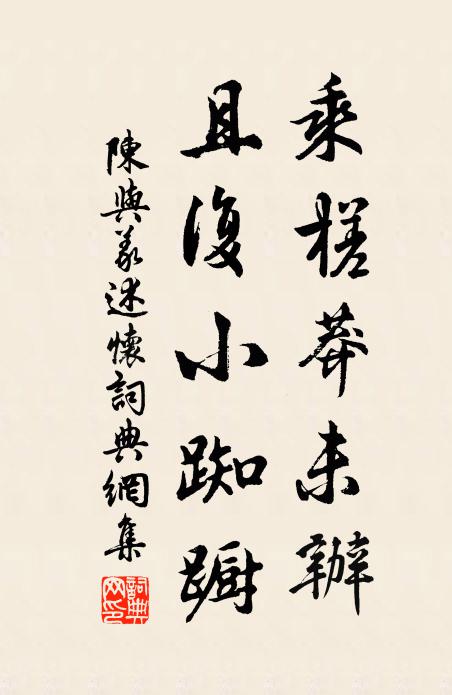 乘槎莽未辦
且復小踟蹰
陳與義述懷詞典網集
詞典网印